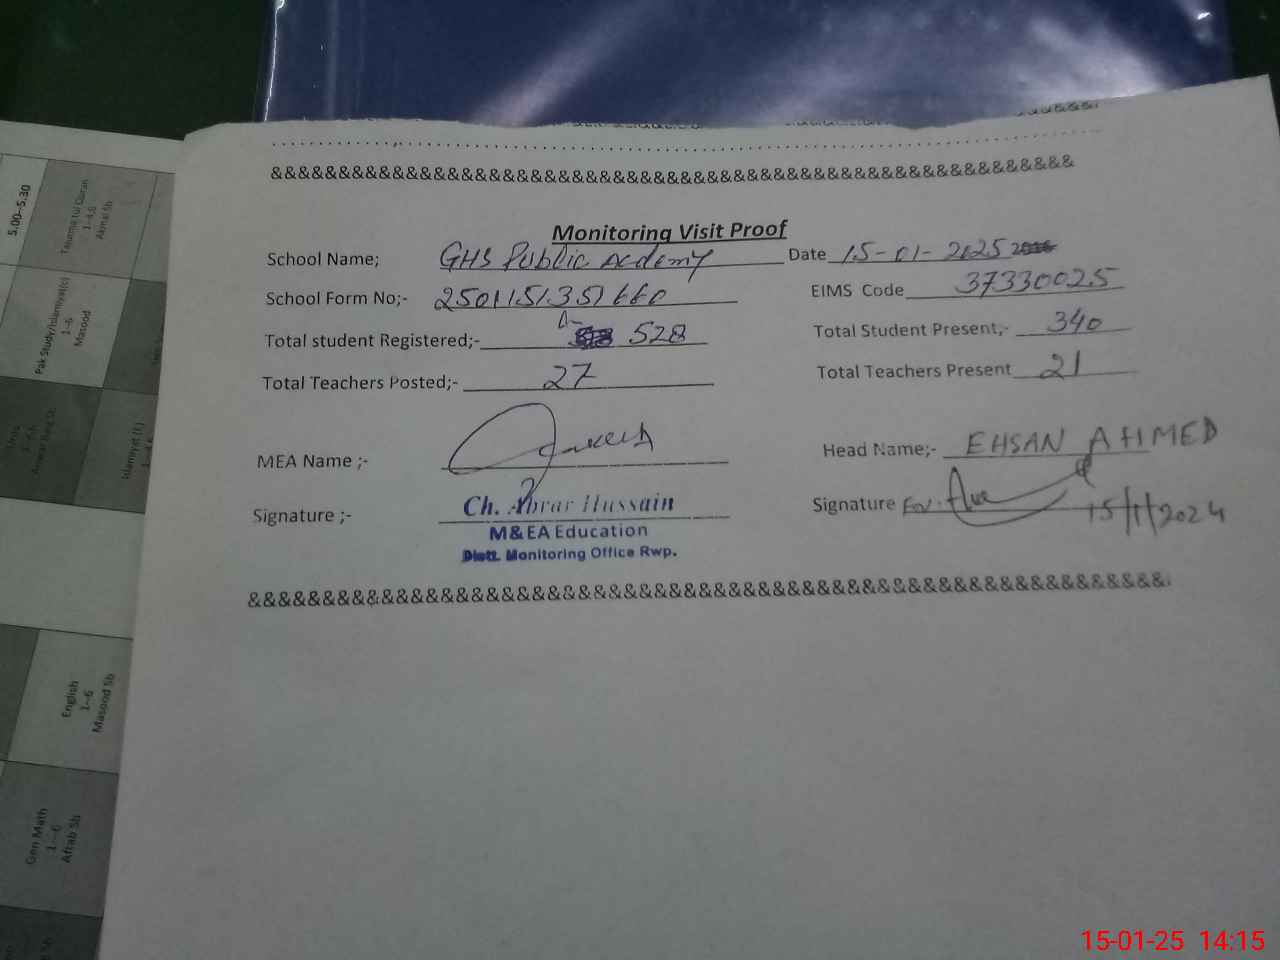 &&&&&&&&&&&&&&&&&&&&&&&&&&&&&&&&&&&&&&&&&&&&&&&&&&&&&&&&&&&
Monitoring Visit Proof
School Name; GHS Public Acdemy Date 15-01-2025
School Form No;- EIMS Code 37330025
Total student Registered;- 528 Total Student Present,- 340
Total Teachers Posted;- 27 Total Teachers Present 21
MEA Name ;- Head Name;- EHSAN AHMED
Signature ;- Ch. Abrar Hussain Signature For. 15/1/2024
M&EA Education
Distt. Monitoring Office Rwp.
&&&&&&&&&&&&&&&&&&&&&&&&&&&&&&&&&&&&&&&&&&&&&&&&&&&&&&&&&&&&&
5.00-5.30
Tarjuma tul Quran
1-4,6
Akmal Sb
Pak Study/Islamiyat(c)
1-6
Masood
Islamiyat (E)
English
1--6
Masood Sb
Gen Math
1--6
Aftab Sb
15-01-25 14:15